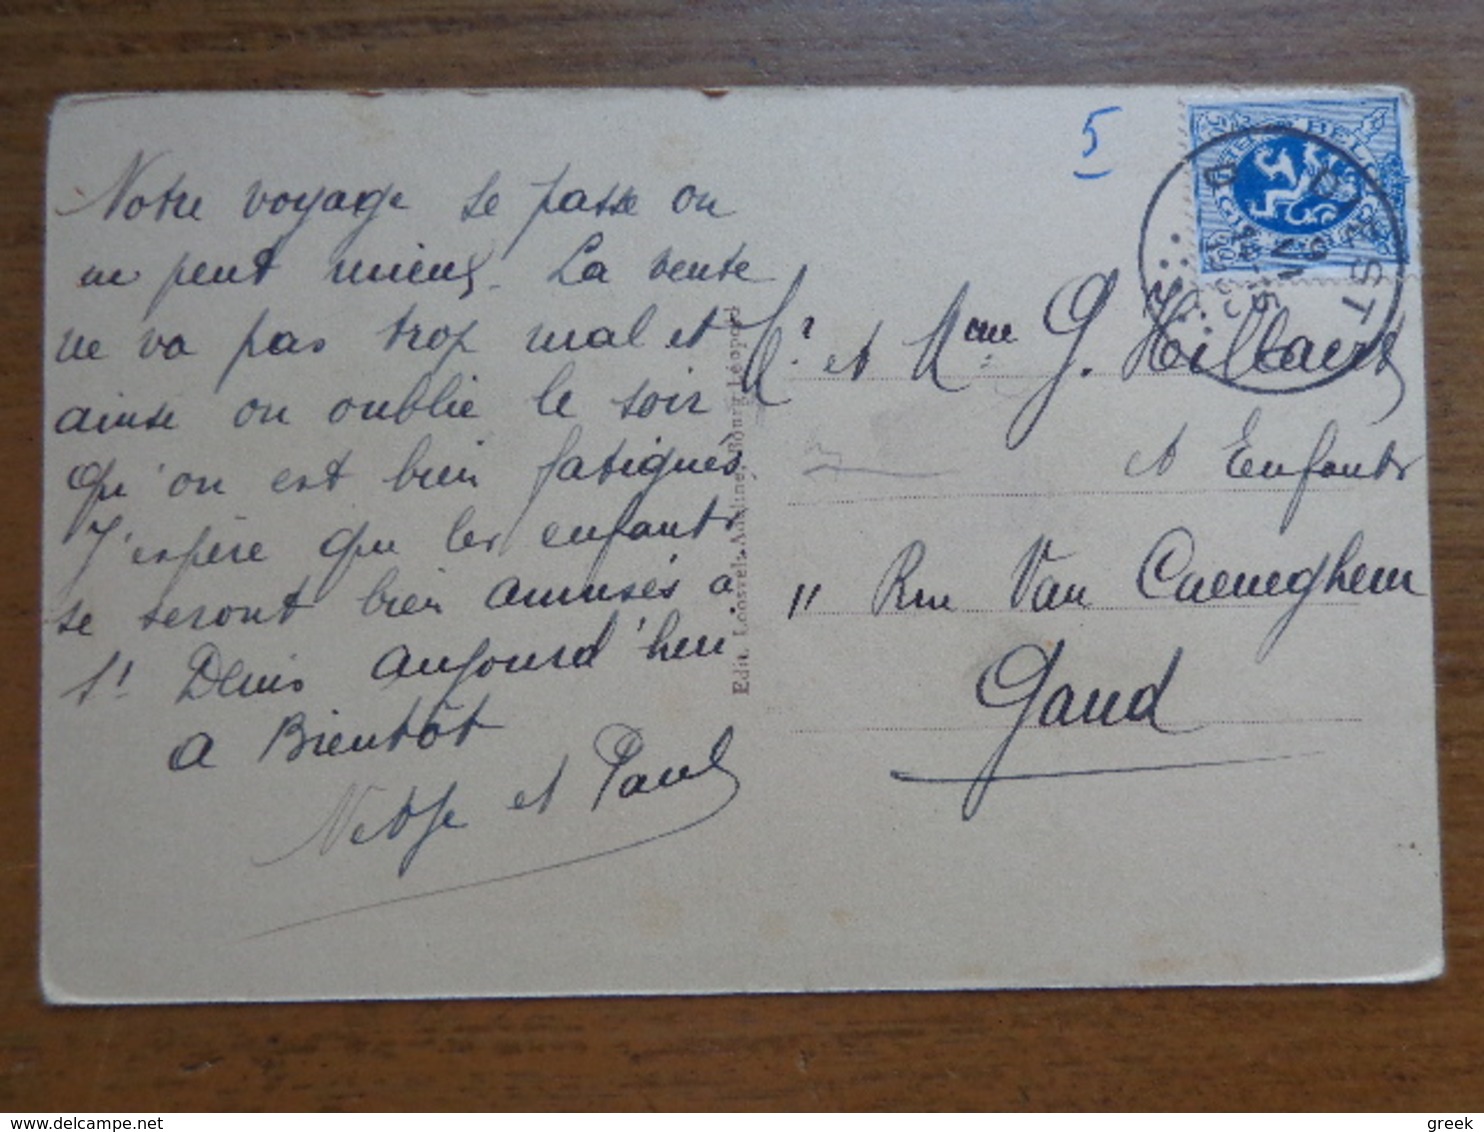 Notre voyage se passe on
ne peut mieux. La vente
ne va pas trop mal et
ainse on oublie le soir
qu'on est bien fatigués
J'espère que les enfants
se seront bien amusés a
St Denis aujourd'hui
a Bientôt
et Paul
Edit. Loosvelt-Adeline, Bourg-Léopold
5
BELGIQUE
DIEST
Mr. et Mme G. Hillaert
et Enfants
11 Rue Van Caeneghem
Gand
delcampe.net
greek